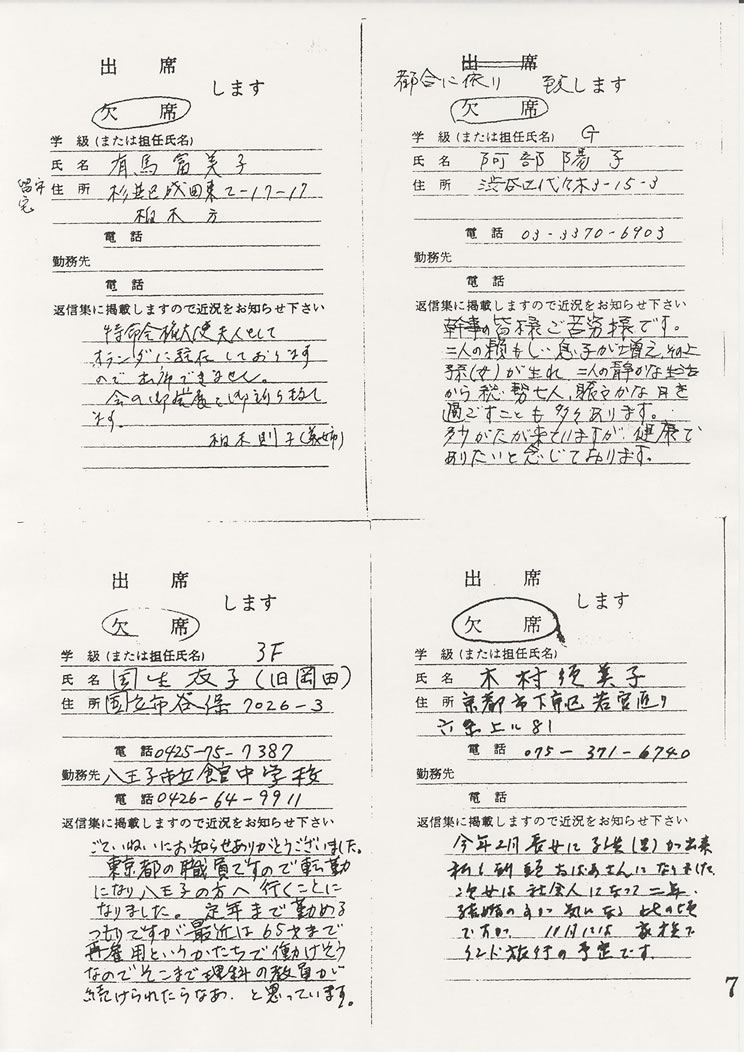 出席
します
欠席
学級(または担任氏名)
氏名 有馬富美子
留守宅
住所 杉並区成田東2-17-17
柏木方
電話
勤務先
電話
返信集に掲載しますので近況をお知らせ下さい
特命全権大使夫人として
オランダに現在しております
ので出席できません。
会の御発展を御祈り致し
ます。
柏木則子(義姉)
出席
都合に依り 致します
欠席
学級(または担任氏名) G
氏名 阿部陽子
住所 渋谷区代々木3-15-3
電話 03-3370-6903
勤務先
電話
返信集に掲載しますので近況をお知らせ下さい
幹事の皆様ご苦労様です。
二人の頼もしい息子が増え、その上
孫(女)が生れ 二人の静かな生活
から 総勢七人、賑やかな日を
過ごすことも多々あります。
多少がたが来ていますが、健康で
ありたいと念じております。
出席
します
欠席
学級(または担任氏名) 3F
氏名 国生衣子(旧岡田)
住所 国立市谷保7026-3
電話 0425-75-7387
勤務先 八王子市立館中学校
電話 0426-64-9911
返信集に掲載しますので近況をお知らせ下さい
ごていねいにお知らせありがとうございました。
東京都の職員ですので転勤
になり八王子の方へ行くことに
なりました。定年まで勤める
つもりですが最近は65才まで
再雇用というかたちで働けそう
なのでそこまで理科の教員が
続けられたらなあ、と思っています。
出席
します
欠席
学級(または担任氏名)
氏名 木村須美子
住所 京都市下京区若宮通り
六条上ル81
電話 075-371-6740
勤務先
電話
返信集に掲載しますので近況をお知らせ下さい
今年2月長女に子供(男)が出来
私も おばあさんになりました
次女は社会人になって二年、
結婚の事が気になる此の頃
ですが、10月には家族で
インド旅行の予定です。
7